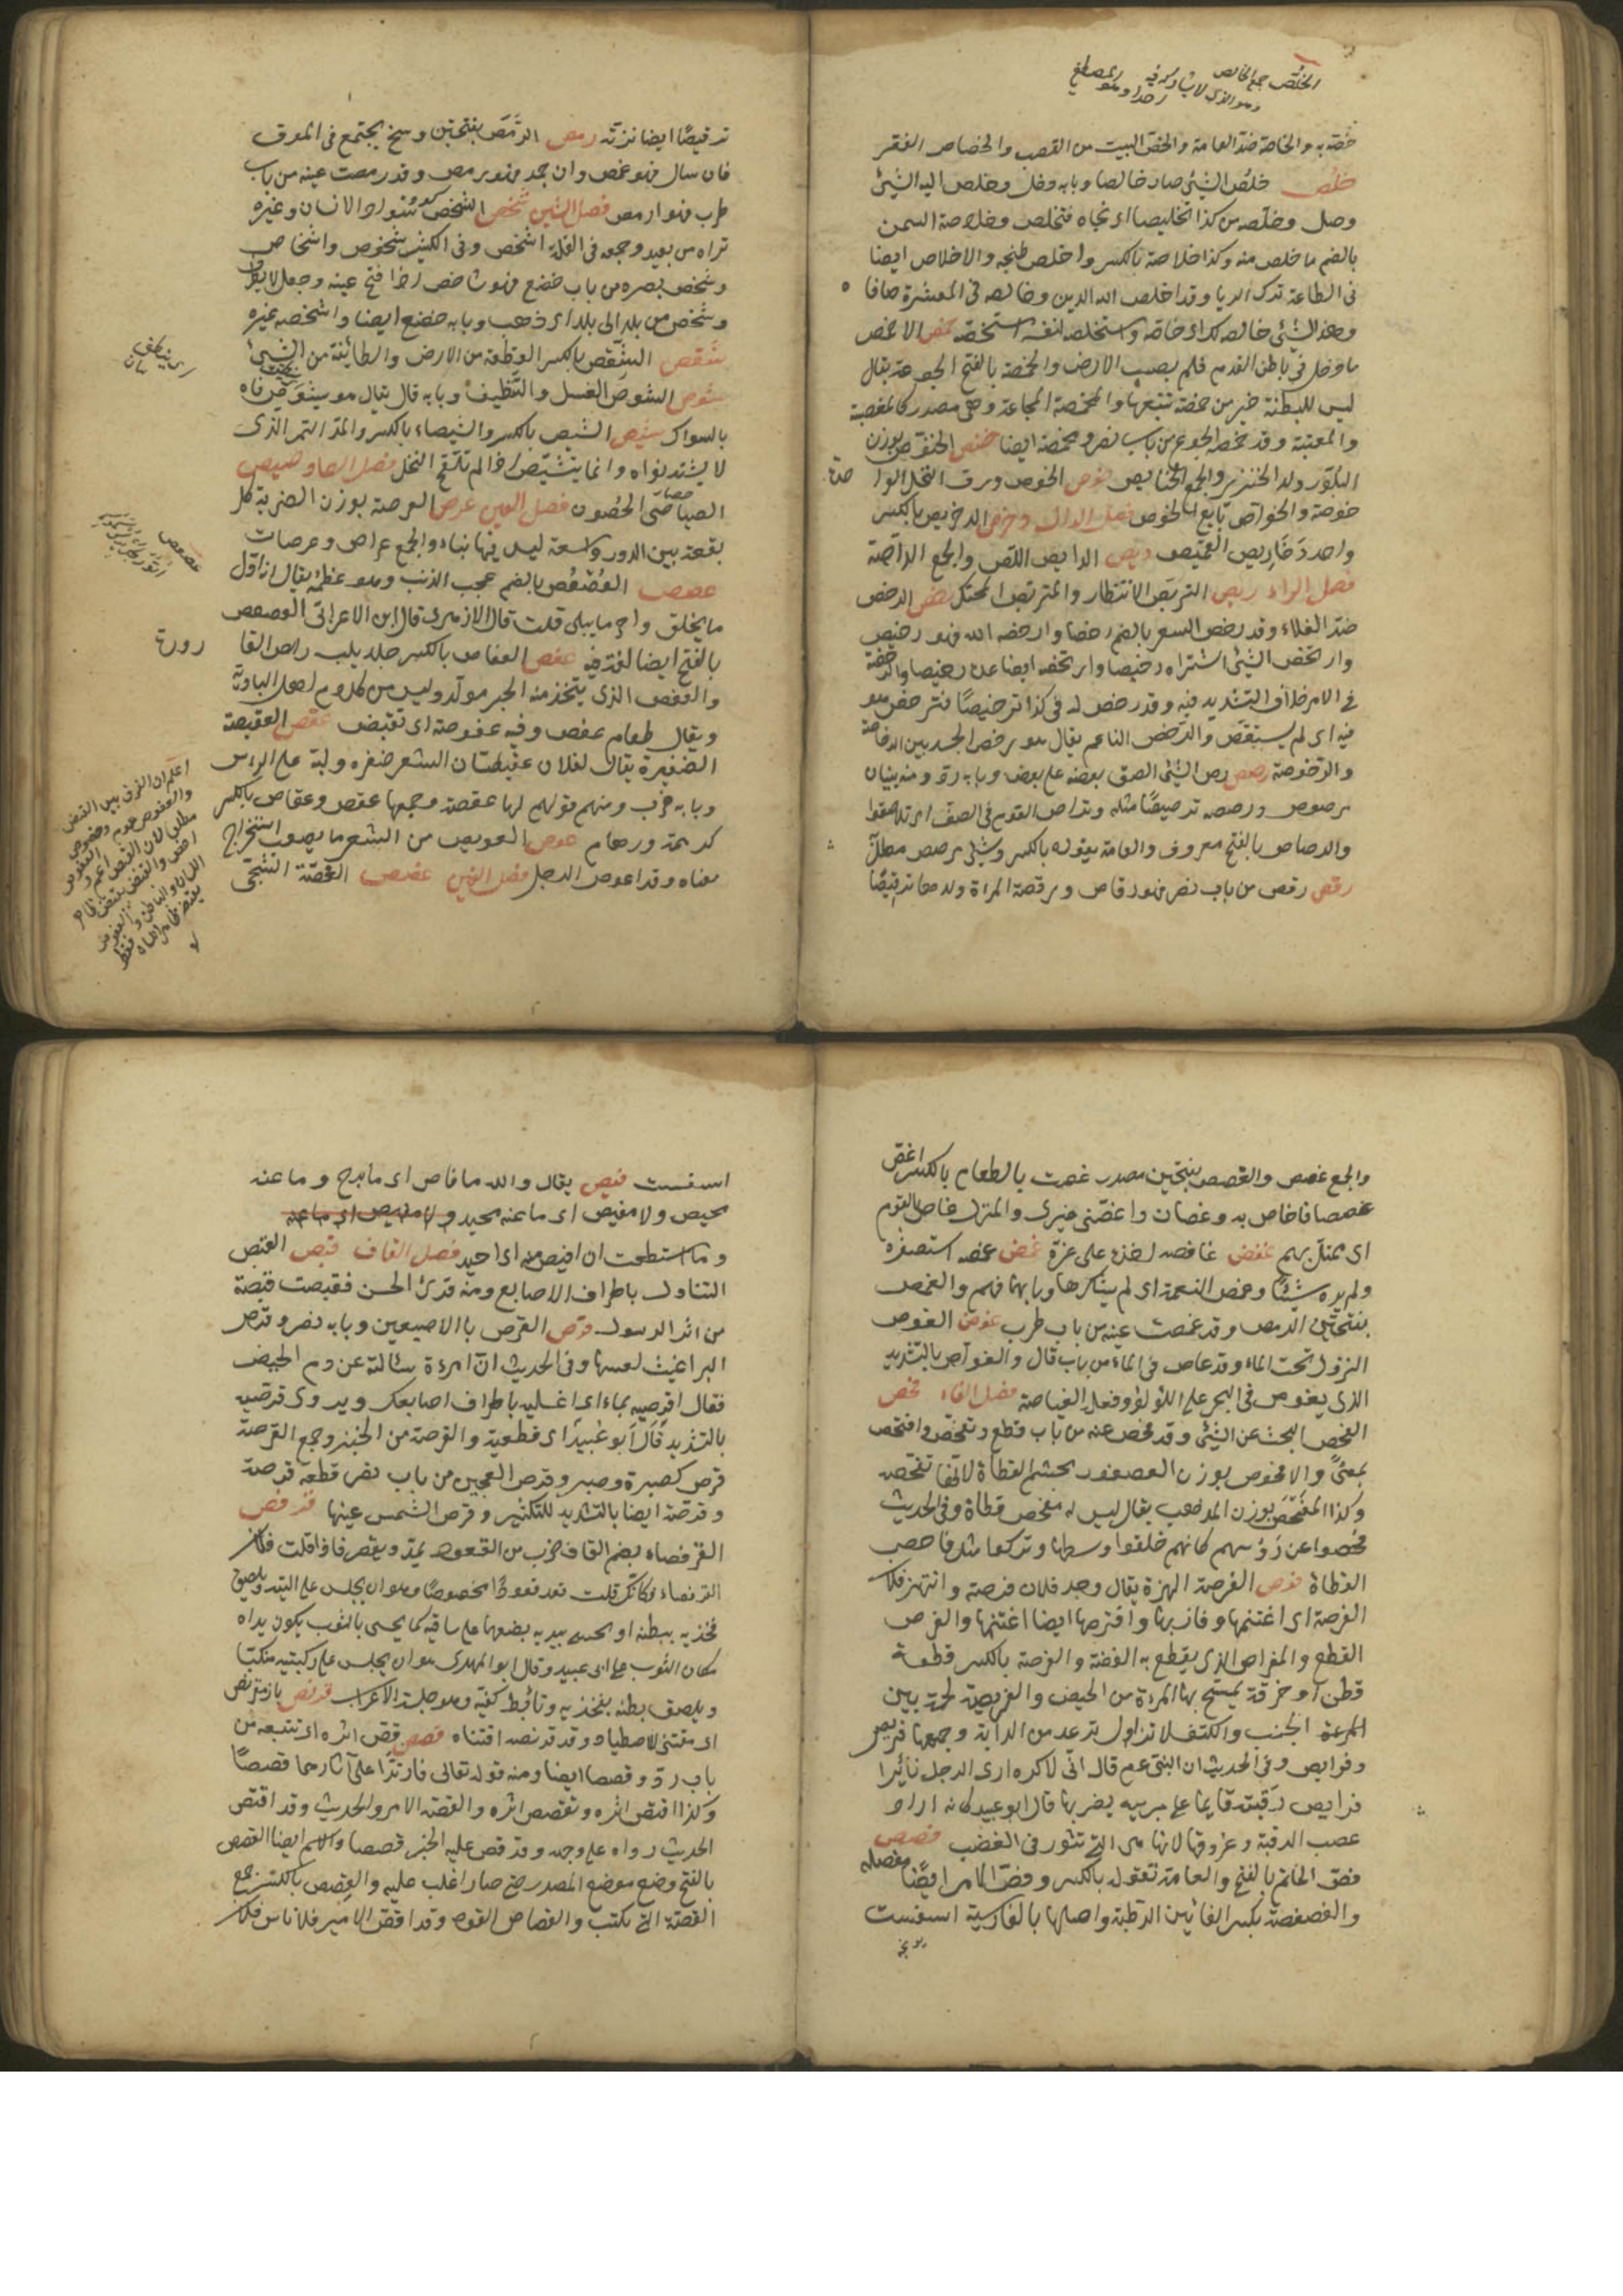 الخلص جمع الخالص
وهو الذي لا يشاركه فيه
خصّه به والخاصة ضدّ العامة والخصّ البيت من القصب والخصاص الفقر
خلص خلص الشيء صار خالصا وبابه دخل وخلص اليه الشيء
وصل وخلّصه من كذا تخليصا اى نجاه فتخلص وخلاصة السمن
بالضم ما خلص منه وكذا خلاصة بالكسر واخلص طبخه والاخلاص ايضا
فى الطاعة ترك الريا وقد اخلص الله الدين وخالصه فى المعشرة صافا ه
وهذ الشيء خالصه لك اى خاصّة واستخلصه لنفسه استخصّه خمص الاخمص
ما دخل فى باطن القدم فلم يصب الارض والخمصة بالفتح الجوعة يقال
ليس للبطنة خير من خمصة تتبعها والمخمصة المجاعة وهى مصدر كالمغضبة
والمعتبة وقد خمصه الجوع من باب نصر ومخمصة ايضا خنص الخنّوص بوزن
البلّور ولد الخنزير والجمع الخنانيص خوص الخوص ورق النخل الوا حدة
خوصة والخوّاص بايع الخوص فصل الدال دخرص الدخريص بالكسر
واحد دخاريص القميص ديص الدايص اللص والجمع الداصة
فصل الراء ربص التربّص الانتظار والمتربّص المحتكر رخص الرخص
ضدّ الغلاء وقد رخص السعر بالضم رخصا وارخصه الله فهو رخيص
وارتخص الشيء اشتراه رخيصا وارتخصه ايضا عدّه رخيصا والرخصة
فى الامر خلاف التشديد فيه وقد رخص له فى كذا ترخيصًا فترخص هو
فيه اى لم يستقص والرخص الناعم يقال هو رخص الجسد بين الرخاصة
والرخوصة رصص رص الشيء الصق بعضه على بعض وبابه ردّ ومنه بنيان
مرصوص ورصصه ترصيصًا مثله وتراص القوم فى الصف اى تلاصقوا
والرصاص بالفتح معروف والعامة يقوله بالكسر وشيء مرصص مطلىّ
رقص رقص من باب نصر فهو رقاص ورقصة المراة ولدها ترقيصًا
ترقيصًا ايضا نزته رمص الرّمَص بفتحتين وسخ يجتمع فى الموق
فان سال فهو غمص وان جمد فهو رمص وقد رمصت عينه من باب
طرب فهو ارمص فصل الشين شخص الشخص سواد الانسان وغيره
تراه من بعيد وجمعه فى القلة اشخص وفى الكثير شخوص واشخاص
وشخص بصره من باب خضع فهو شاخص اذا فتح عينه وجعل لا يطرف
وشخص من بلد الى بلد اى ذهب وبابه خضع ايضا واشخصه غيره
شقص الشّقص بالكسر القطعة من الارض والطائفة من الشيء
شوص الشوص الغسل والتنظيف وبابه قال يقال هو يشوص فاه
بالسواك شيص الشيص بالكسر والشيصاء بالكسر والمدّ التمر الذى
لا يشتد نواه وانما يتشيّص اذا لم تلقح النخل فصل الصاد صيص
الصياصى الحصون فصل العين عرص العرصة بوزن الضربة كل
بقعة بين الدور واسعة ليس فيها بناء والجمع عراص وعرصات
عصص العُصْعُص بالضم عجب الذنب وهو عظمه يقال انه اول
ما يخلق واخر ما يبلى قلت قال الازهرى قال ابن الاعرابى العصعص
بالفتح ايضا لغة فيه عفص العفاص بالكسر جلد يلبسه راس القا رورة
والعفص الذى يتخذ منه الحبر مولّد وليس من كلام اهل البادية
ويقال طعام عفص وفيه عفوصة اى تقبض عقص العقيصة
الضفيرة يقال لفلان عقيصتان الشعر ضفره وليّه على الراس
وبابه ضرب ومنهم قولهم لها عقصة وجمعها عقص وعقاص بالكسر
كرهمة ورهام عوص العويص من الشعر ما يصعب استخراج
معناه وقد اعوص الرجل فصل الغين غصص الغصّة الشجى
عصعص
اعلم ان الفرق بين القبض
والعفوص عموم وخصوص
والجمع غصص والغصص بفتحتين مصدر غصت بالطعام بالكسر اغصّ
غصصا فاغاص به وغصان واغصّنى غيرى والمنزل غاص بالقوم
اى ممتلئ بهم غفص غافصه اخذه على غرّة غمص غمصه استصغره
ولم يره شيئًا وغمص النعمة اى لم يشكرها وبابهما فهم والغمص
بفتحتين الرمص وقد غمصت عينه من باب طرب غوص الغوص
النزول تحت الماء وقد غاص فى الماء من باب قال والغوّاص بالتشديد
الذى يغوص فى البحر على اللؤلؤ وفعله الغياصة فصل الفاء فحص
الفحص البحث عن الشيء وقد فحص عنه من باب قطع وتفحّص وافتحص
بمعنىً والافحوص بوزن العصفور مجثم القطاة لانها تفحصه
وكذا المَفْحَص بوزن المذهب يقال ليس له مفحص قطاة وفى الحديث
فحصوا عن رؤسهم كانهم حلقوا وسطها وتركوها مثل افاحيص
القطاة فرص الفرصة النهزة يقال وجد فلان فرصة وانتهز فلان
الفرصة اى اغتنمها وفاز بها وافترصها ايضا اغتنمها والفرص
القطع والمفراص الذى يقطع به الفضة والفرصة بالكسر قطعة
قطن او خرقة يمسح بها المرءة من الحيض والفريصة لحمة بين
المرعة الجنب والكتف لا تزال ترعد من الدابة وجمعها فريص
وفرايص وفى الحديث ان النبى عم قال انّى لاكره ارى الرجل ثائرا
فرايص رَقبته قايما على مريته يضربها قال ابو عبيد كانه اراد
عصب الرقبة وعروقها لانها هى التى تثور فى الغضب فصص
فصّ الخاتم بالفتح والعامة تقوله بالكسر وفصّ الامر ايضًا مفصله
والفصفصة بكسر الفائين الرطبة واصلها بالفارسية اسفست
اسفست فيص يقال والله ما فاص اى ما برح وما عنه
محيص ولا مفيص اى ما عنه محيد ولا مفيص اى ما عنه
وما استطعت ان افيص منه اى احيد فصل القاف قبص القبص
التناول باطراف الاصابع ومنه قرئ الحسن فقبصت قبصة
من اثر الرسول قرص القرص باالاصبعين وبابه نصر وقرص
البراغيث لسعها وفى الحديث انّ امرءة سئالته عن دم الحيض
فقال اقرصيه بماء اى اغسليه باطراف اصابعك ويروى قرصيه
بالتشديد قال ابو عُبيد اى قطعيه والقرصة من الخبز وجمع القرصة
قرص كصبرة وصبر وقرص العجين من باب نصر قطعه قرصة
وقرصه ايضا بالتشديد للتكثير وقرص الشمس عينها قرفص
القرفصاء بضم القاف ضرب من القعود يمدّ ويقصر فاذا قلت فلان
القرفصاء فكانّك قلت قعد قعودًا مخصوصًا وهو ان يجلس على اليتيه ويلصق
فخذيه ببطنه او يحتبى بيديه يضعهما على ساقيه كما يحتبى بالثوب يكون يداه
مكان الثوب عن ابى عبيد وقال ابو المهدى هو ان يجلس على ركبتيه منكبّا
ويلصق بطنه بفخذيه ويتأبط كفّيه وهو جلسة الاعراب قرنص باز مقرنص
اى مقتنى للاصطياد وقد قرنصه اقتناه قصص قصّ اثره اى تتبعه من
باب ردّ وقصصا ايضا ومنه قوله تعالى فارتدّا على آثارهما قصصًا
وكذا اقتص اثره وتقصص اثره والقصّة الامر والحديث وقد اقتص
الحديث رواه على وجهه وقد قص عليه الخبر قصصا والاسم ايضا القصص
بالفتح وضع موضع المصدر حتى صار اغلب عليه والقِصص بالكسر جمع
القصّة التى تكتب والقصاص القود وقد اقصّ الامير فلانا من فلان